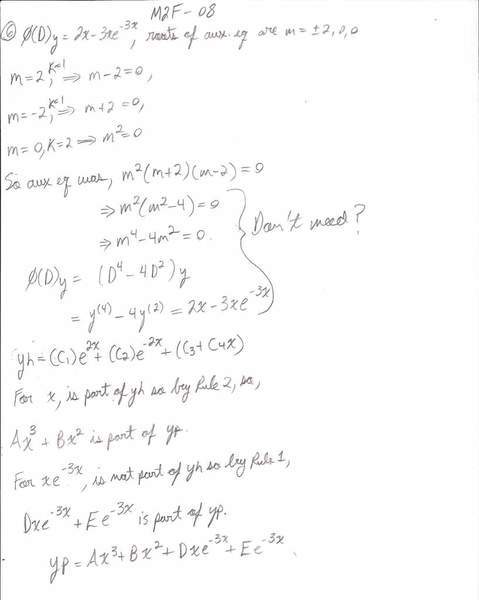 M2F-08
⑥ Ø(D)y = 2x - 3xe^{-3x}, roots of aux. eq are m = ±2, 0, 0
m = 2, K=1 ⟹ m - 2 = 0,
m = -2, K=1 ⟹ m + 2 = 0,
m = 0, K = 2 ⟹ m² = 0
So aux eq was, m²(m+2)(m-2) = 0
⟹ m²(m²-4) = 0
⟹ m⁴ - 4m² = 0.
Don't need?
Ø(D)y = (D⁴ - 4D²)y
= y⁽⁴⁾ - 4y⁽²⁾ = 2x - 3xe^{-3x}
yh = (C₁)e^{2x} + (C₂)e^{-2x} + (C₃ + C₄x)
For x, is part of yh so by Rule 2, so,
Ax³ + Bx² is part of yp.
For xe^{-3x}, is not part of yh so by Rule 1,
Dxe^{-3x} + Ee^{-3x} is part of yp.
yp = Ax³ + Bx² + Dxe^{-3x} + Ee^{-3x}.